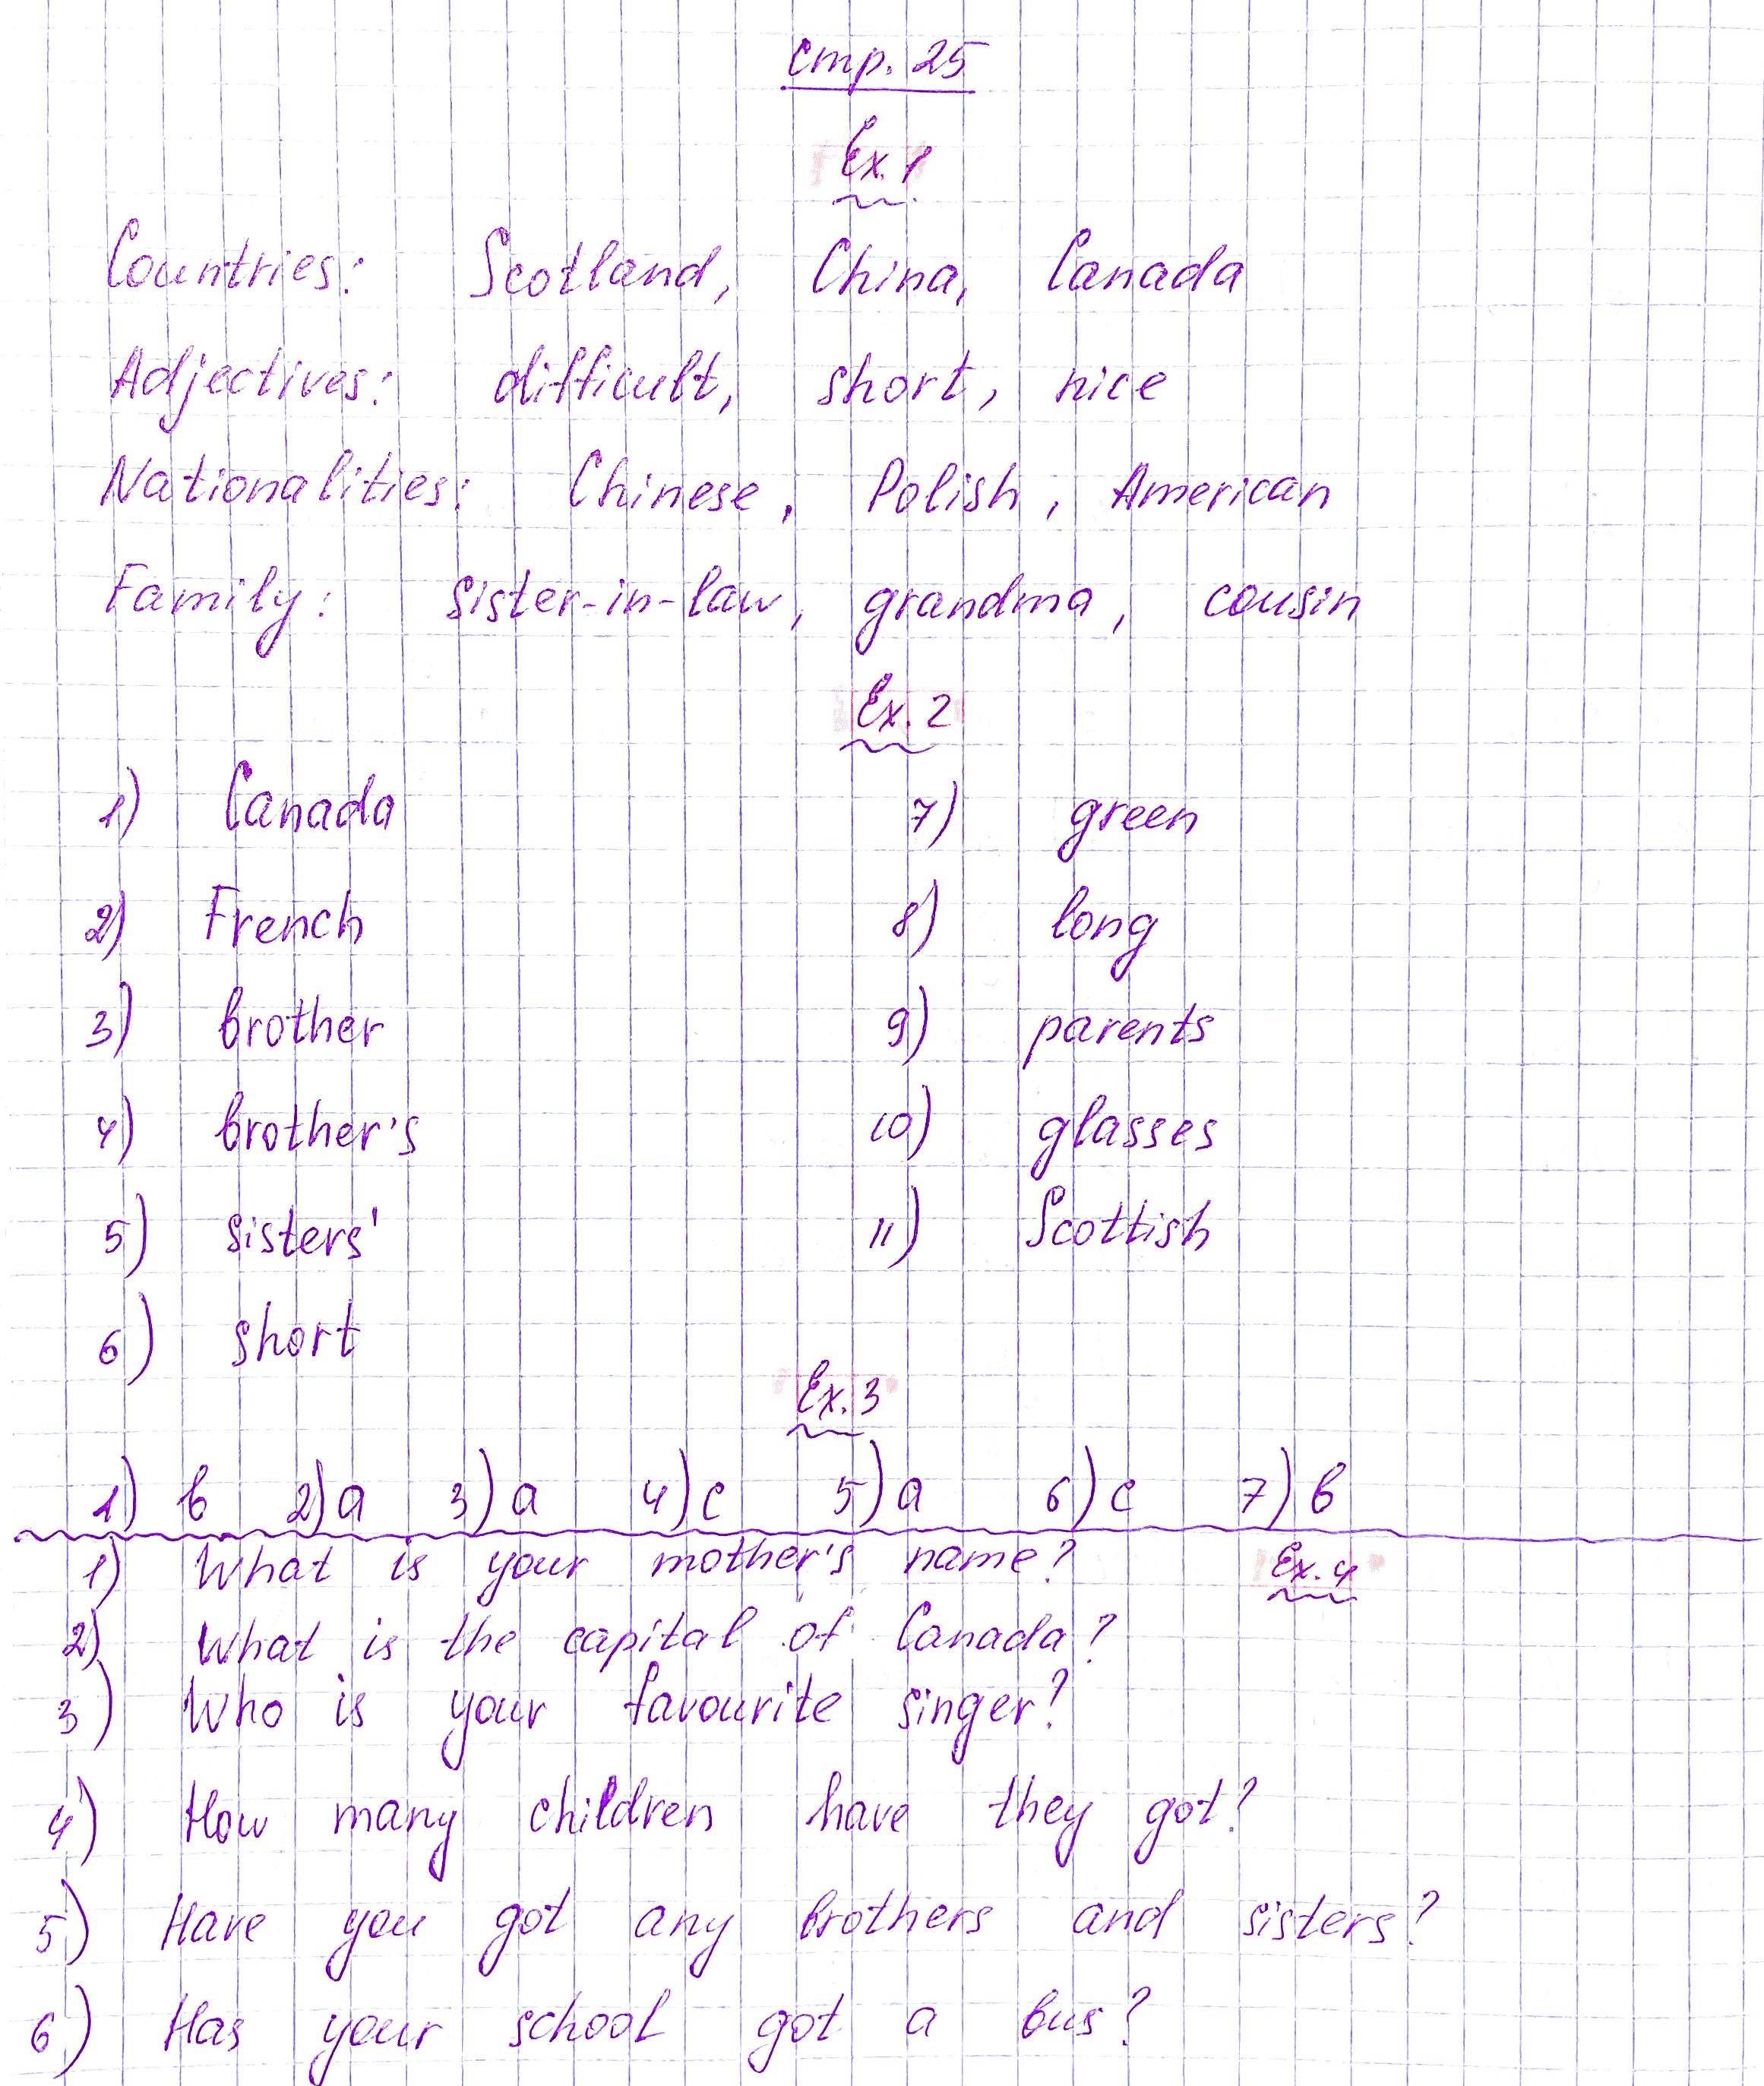 стр. 25
Ex. 1
Countries: Scotland, China, Canada
Adjectives: difficult, short, nice
Nationalities: Chinese, Polish, American
Family: sister-in-law, grandma, cousin
Ex. 2
1) Canada 7) green
2) French 8) long
3) brother 9) parents
4) brother's 10) glasses
5) sisters' 11) Scottish
6) short
Ex. 3
1) b 2) a 3) a 4) c 5) a 6) c 7) b
1) What is your mother's name? Ex. 4
2) What is the capital of Canada?
3) Who is your favourite singer?
4) How many children have they got?
5) Have you got any brothers and sisters?
6) Has your school got a bus?